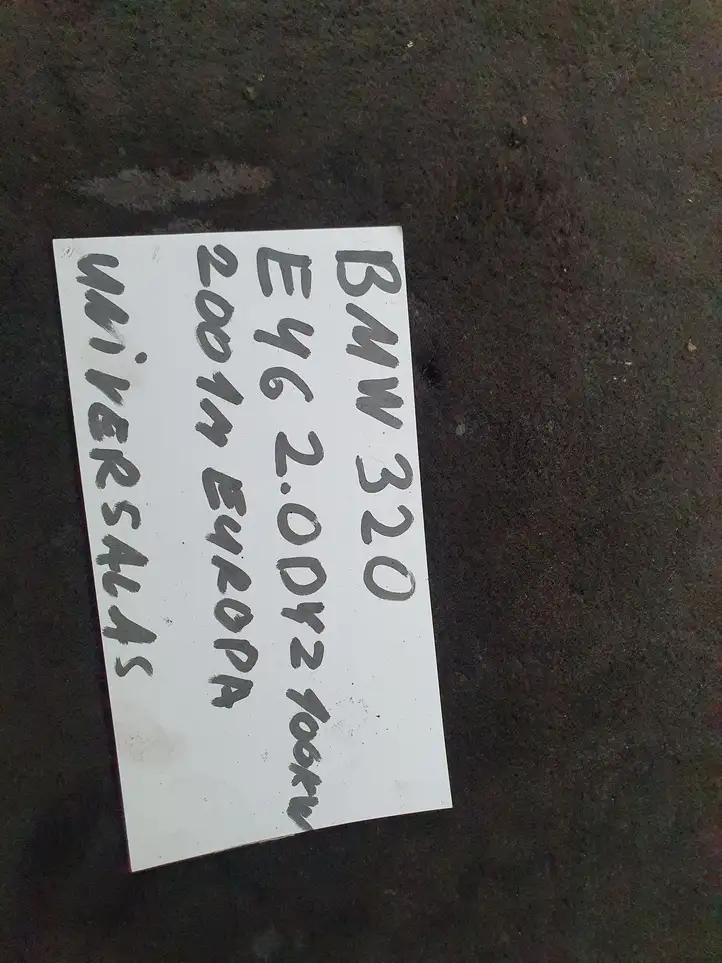 BMW 320
E46 2.0DYZ 100KW
2001M EUROPA
UNIVERSALAS